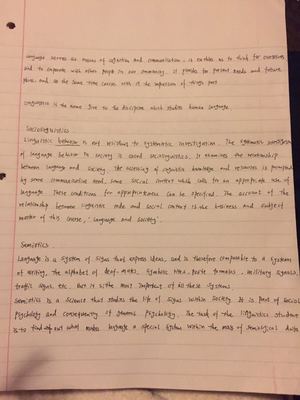 Language serves as means of cognition and communication, it enables us to think for ourselves
and to cooperate with other people in our community. It provides for present needs and future
plans, and at the same time carries with it the impression of things past.
Linguistics is the name given to the discipline which studies human language.
Sociolinguistics
Linguistic behavior is not resistant to systematic investigation. The systematic investigation
of language behavior in society is called sociolinguistics. It examines the relationship
between language and society. The working of linguistic knowledge and resources is prompted
by some communicative need, some social context which calls for an appropriate use of
language. These conditions for appropriateness can be specified. The account of the
relationship between linguistic code and social context is the business and subject
matter of this course, 'language and society'.
Semiotics
Language is a system of signs that express ideas, and is therefore comparable to a system
of writing, the alphabet of deaf-mutes, symbolic rites, polite formulas, military signals,
traffic signs etc. But it is the most important of all these systems.
Semiotics is a science that studies the life of signs within society. It is part of social
psychology and consequently of general psychology. The task of the linguistics student
is to find out what makes language a special system within the mass of semiological data